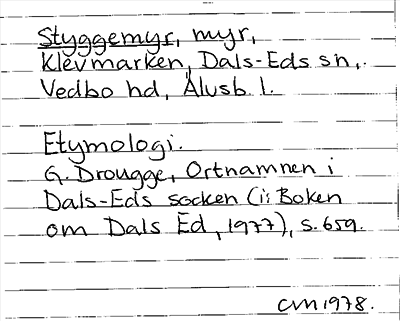 Styggemyr, myr,
Klevmarken, Dals-Eds sn,
Vedbo hd, Älvsb. l.
Etymologi.
G. Drougge, Ortnamnen i
Dals-Eds socken (i: Boken
om Dals Ed, 1977), s. 659.
CM 1978.